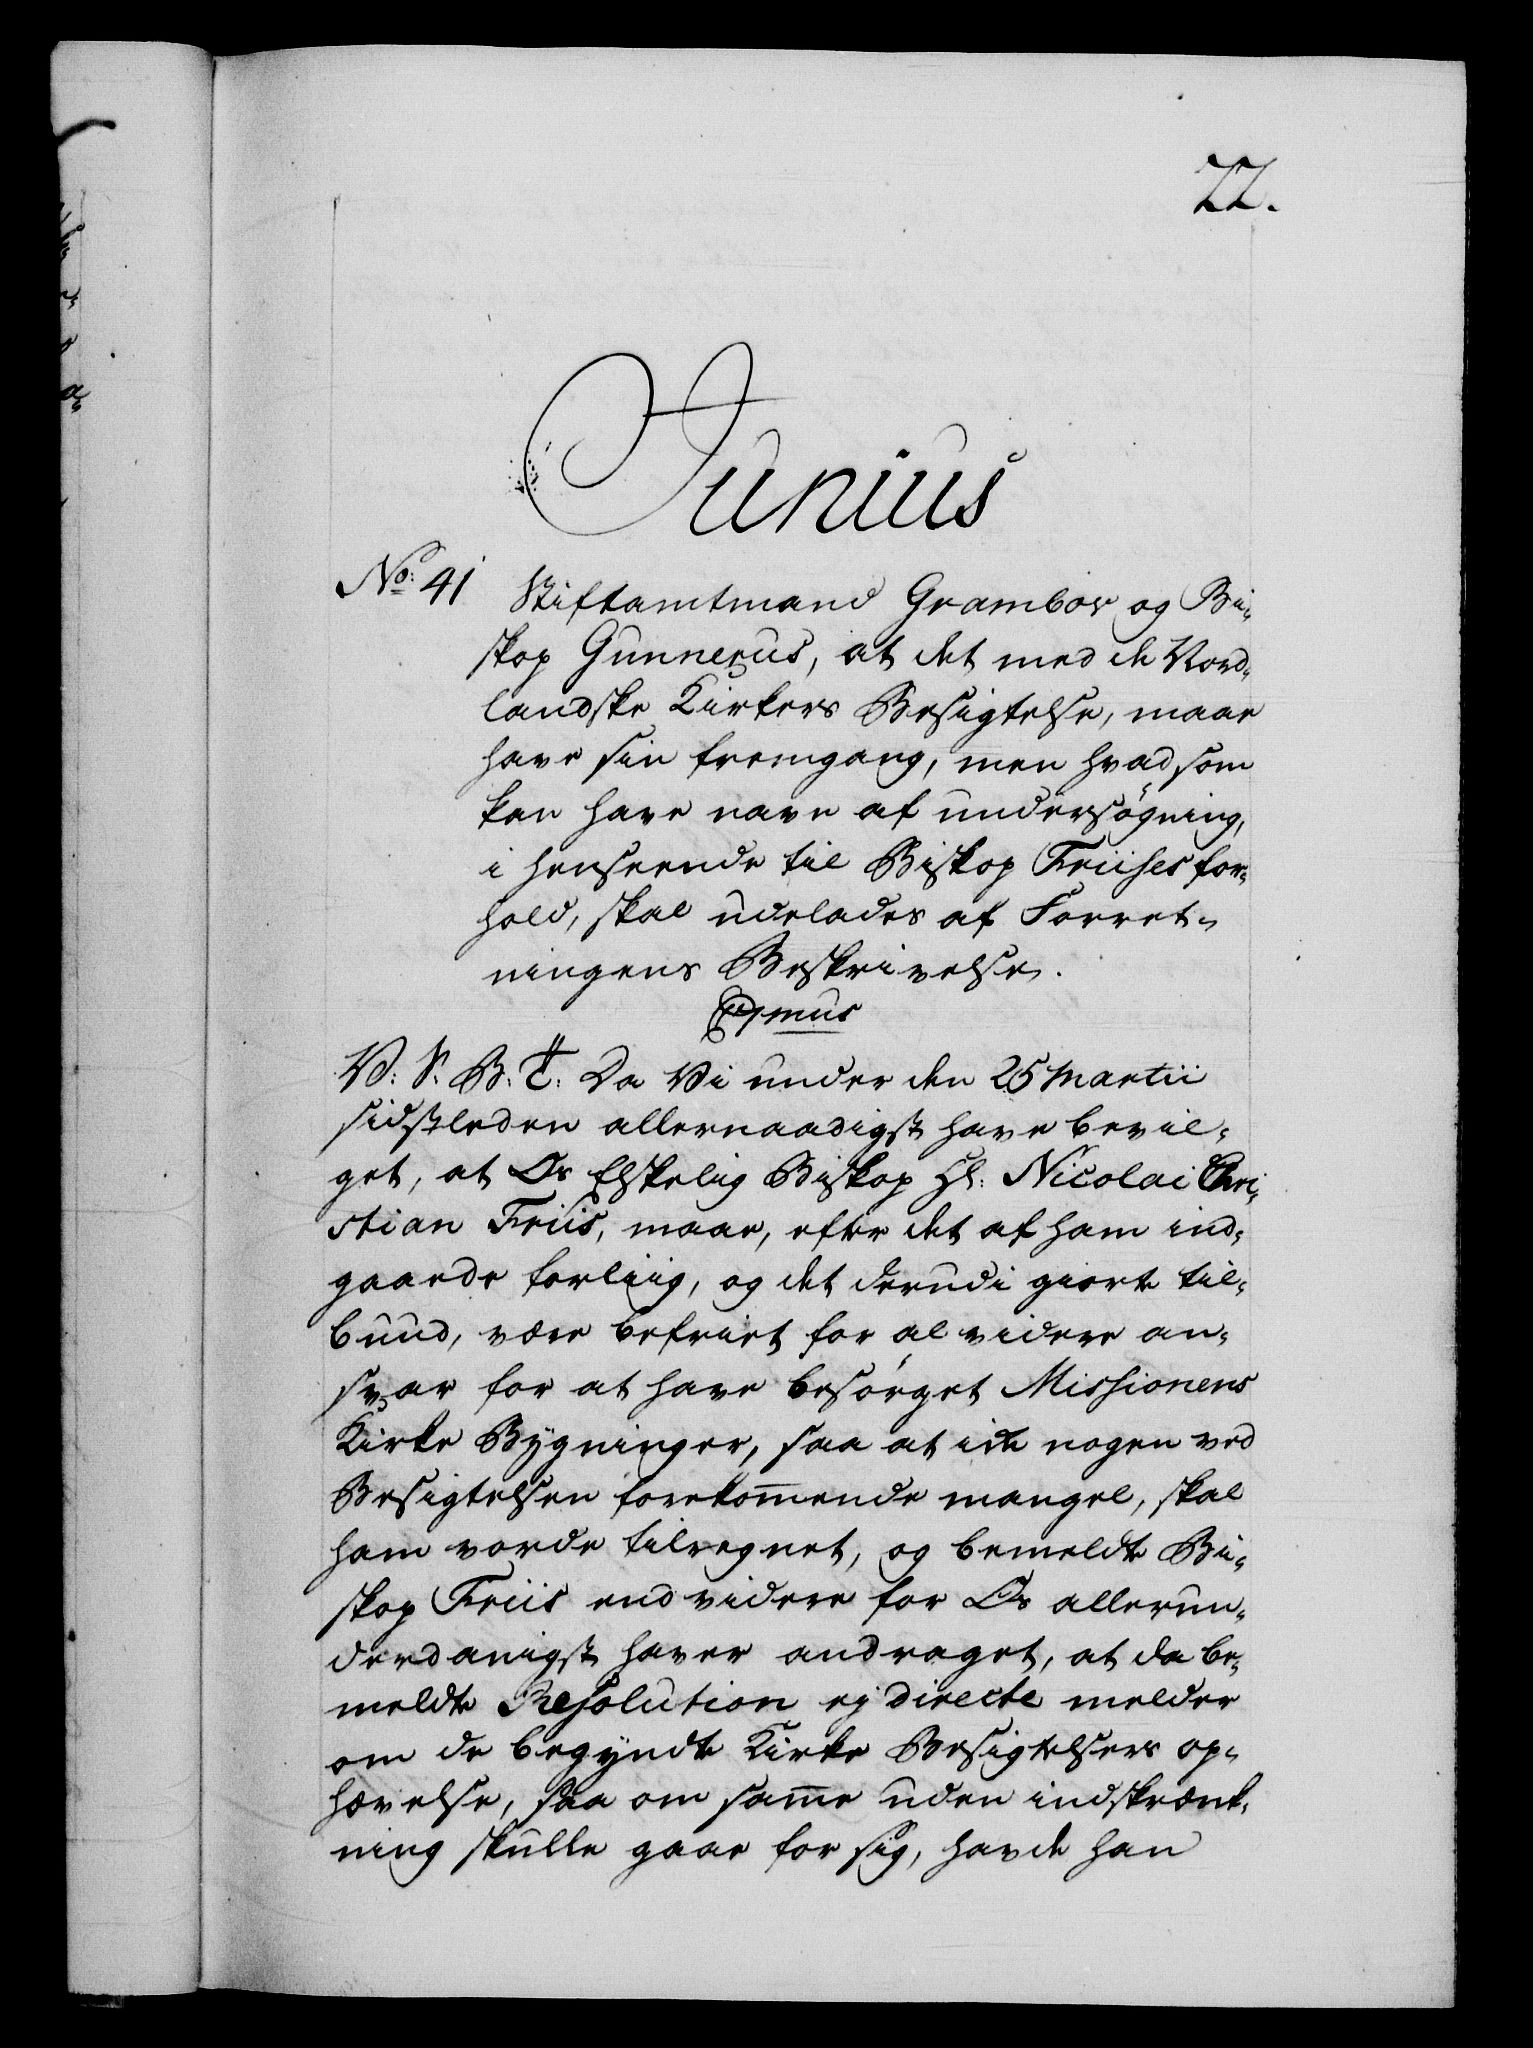 22.
Junius
No: 41 Stiftamtmand Grambov og Bi-
skop Gunnerus, at det med de Nord-
landske Kirkers Besigtelse, maae
have sin fremgang, men hvad som
kan have navn af undersøgning,
i henseende til Biskop Friises for-
hold, skal udelades af Forret-
ningens Beskrivelse.
V: S. B. T: Da Vi under den 25 Martii
sidstleden allernaadigst have bevil-
get, at Os Elskelig Biskop Hl: Nicolai Chri-
stian Friis, maae, efter det af ham ind-
gaaede forliig, og det derudi giorte til-
bund, være befriet for al videre an-
svar for at have besørget Missionens
Kirke Bygninger, saa at icke nogen ved
Besigtelsen forekom̅ende mangel, skal
ham vorde tilregnet, og bemeldte Bi-
skop Friis end videre for Os allerun-
derdanigst haver andraget, at da be-
meldte Resolution ej directe melder
om de begyndte Kirke Besigtelsers op-
hævelse, saa om sam̅e uden indskrænk-
ning skulle gaae for sig, havde han